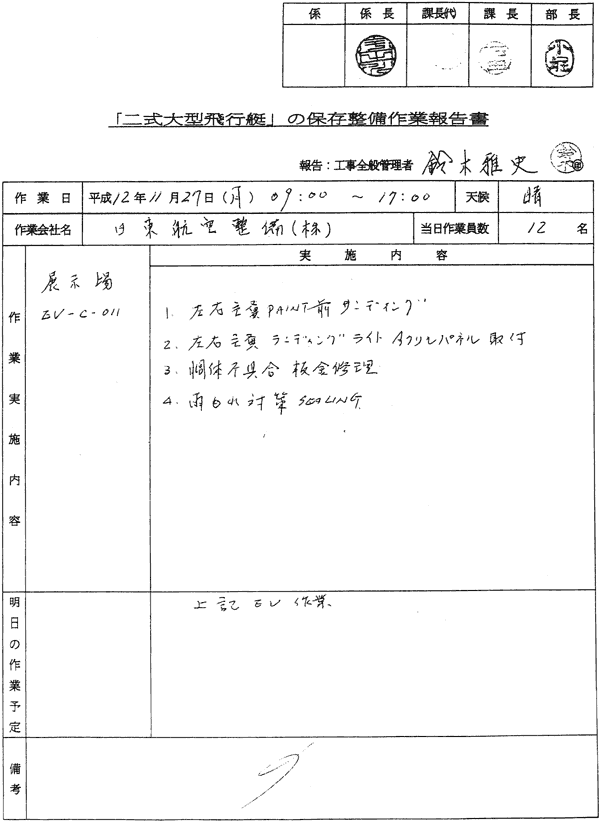 係 係長 課長(代) 課長 部長
「二式大型飛行艇」の保存整備作業報告書
報告：工事全般管理者 鈴木雅史
作業日 平成12年11月27日(月) 09:00 ～ 17:00 天候 晴
作業会社名 日東航空整備(株) 当日作業員数 12名
作業実施内容
実施内容
展示場
EV-C-011
1. 左右主翼PAINT前サンディング
2. 左右主翼ランディングライトアクリルパネル取付
3. 胴体不具合 板金修理
4. 雨もれ対策SEALING
明日の作業予定
上記EV作業
備考